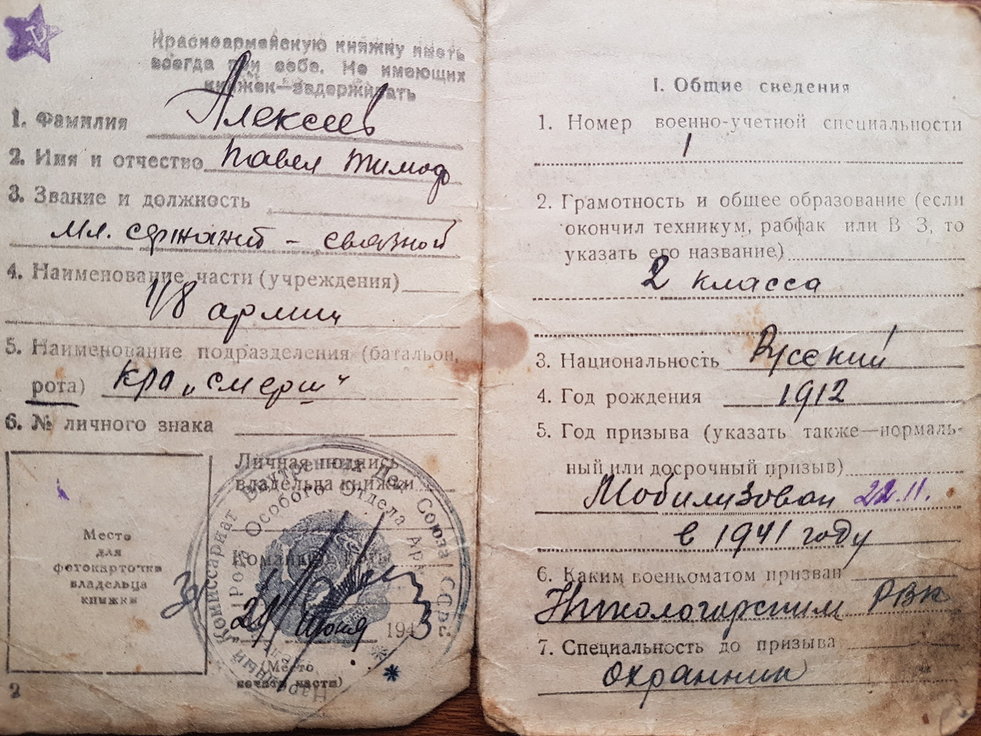 Красноармейскую книжку иметь
всегда при себе. Не имеющих
книжек—задерживать
1. Фамилия Алексеев
2. Имя и отчество Павел Тимоф
3. Звание и должность
мл. сержант - связной
4. Наименование части (учреждения)
48 армии
5. Наименование подразделения (батальон,
рота) кро „Смерш“
6. № личного знака
Личная подпись
владельца книжки
Место
для
фотокарточки
владельца
книжки
Народный Комиссариат Внутренних Дел Союза ССР
Особого Отдела
Командир
21 июня 1943
(Место
печати части)
2
I. Общие сведения
1. Номер военно-учетной специальности
1
2. Грамотность и общее образование (если
окончил техникум, рабфак или В З, то
указать его название)
2 класса
3. Национальность Русский
4. Год рождения 1912
5. Год призыва (указать также—нормаль-
ный или досрочный призыв)
Мобилизован 22.11.
в 1941 году
6. Каким военкоматом призван
Никологорским РВК
7. Специальность до призыва
охранник